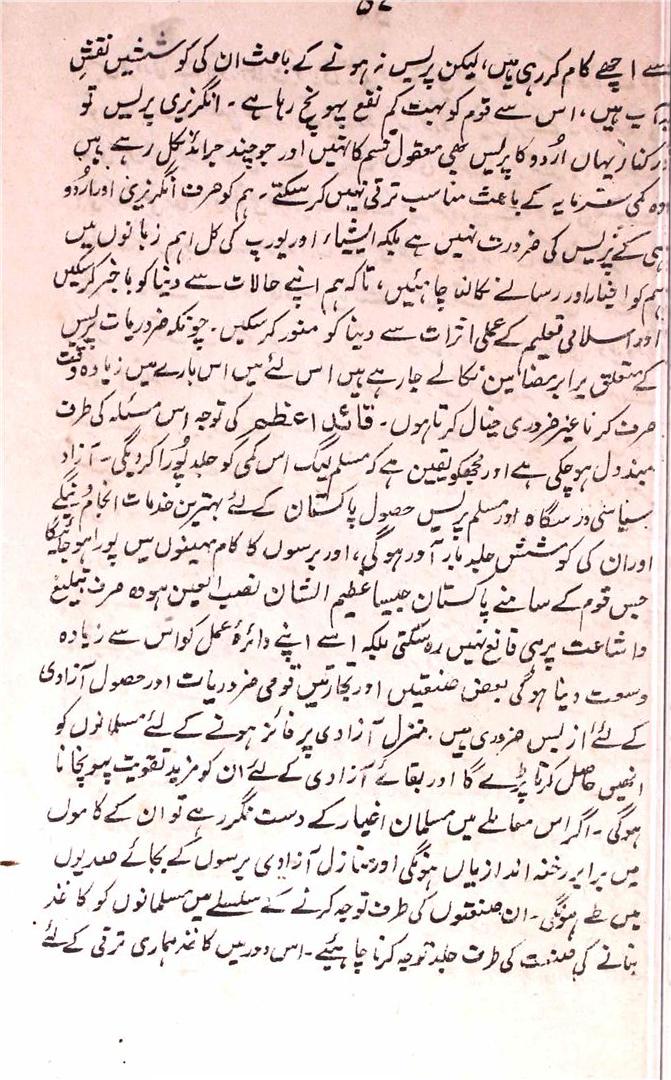 ۵۷
سے اچھے کام کر رہی ہیں، لیکن پریس نہ ہونے کے باعث ان کی کوششیں نقش
بر آب ہیں، اس سے قوم کو بہت کم نفع پہونچ رہا ہے۔ انگریزی پریس تو
درکنار یہاں اُردو کا پریس بھی معقول قسم کا نہیں اور جو چند جرائد نکل رہے ہیں
وہ کمی سرمایہ کے باعث مناسب ترقی نہیں کر سکتے۔ ہم کو صرف انگریزی اور اُردو
ہی کے پریس کی ضرورت نہیں ہے بلکہ ایشیاء اور یورپ کی کل اہم زبانوں میں
ہم کو اخبار اور رسالے نکالنا چاہئیں، تاکہ ہم اپنے حالات سے دنیا کو باخبر کر سکیں
اور اسلامی تعلیم کے عملی اثرات سے دنیا کو منور کر سکیں۔ چونکہ ضروریات پریس
کے متعلق برابر مضامین نکالے جا رہے ہیں اس لئے میں اس بارے میں زیادہ وقت
صرف کرنا غیر ضروری خیال کرتا ہوں۔ قائد اعظم کی توجہ اس مسئلہ کی طرف
مبذول ہو چکی ہے اور مجھکو یقین ہے کہ مسلم لیگ اس کمی کو جلد پورا کر دیگی۔ آزاد
سیاسی درسگاہ اور مسلم پریس حصول پاکستان کے لئے بہترین خدمات انجام دینگے
اور ان کی کوشش جلد بار آور ہوگی، اور برسوں کا کام مہینوں میں پورا ہو جائیگا
جس قوم کے سامنے پاکستان جیسا عظیم الشان نصب العین ہو وہ صرف تبلیغ
و اشاعت پر ہی قانع نہیں رہ سکتی بلکہ اسے اپنے دائرۂ عمل کو اس سے زیادہ
وسعت دینا ہوگی بعض صنعتیں اور تجارتیں قومی ضروریات اور حصول آزادی
کے لئے از بس ضروری ہیں۔ منزل آزادی پر فائز ہونے کے لئے مسلمانوں کو
انھیں حاصل کرنا پڑے گا اور بقائے آزادی کے لئے ان کو مزید تقویت پہونچانا
ہوگی۔ اگر اس معاملے میں مسلمان اغیار کے دست نگر رہے تو ان کے کاموں
میں برابر رخنہ اندازیاں ہونگی اور منازل آزادی برسوں کے بجائے صدیوں
میں طے ہونگی۔ ان صنعتوں کی طرف توجہ کرنے کے سلسلے میں مسلمانوں کو کاغذ
بنانے کی صنعت کی طرف جلد توجہ کرنا چاہیئے۔ اس دور میں کاغذ ہماری ترقی کے لئے